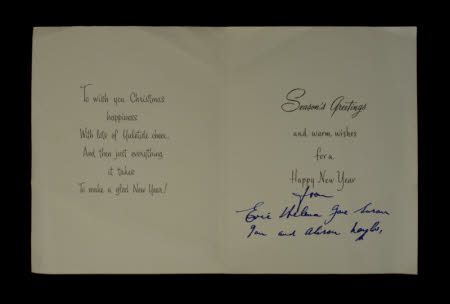 To wish you Christmas
happiness
With lots of Yuletide cheer,
And then just everything
it takes
To make a glad New Year!
Season's Greetings
and warm wishes
for a
Happy New Year
from
Eric Thelma Susan
Ian and Alison